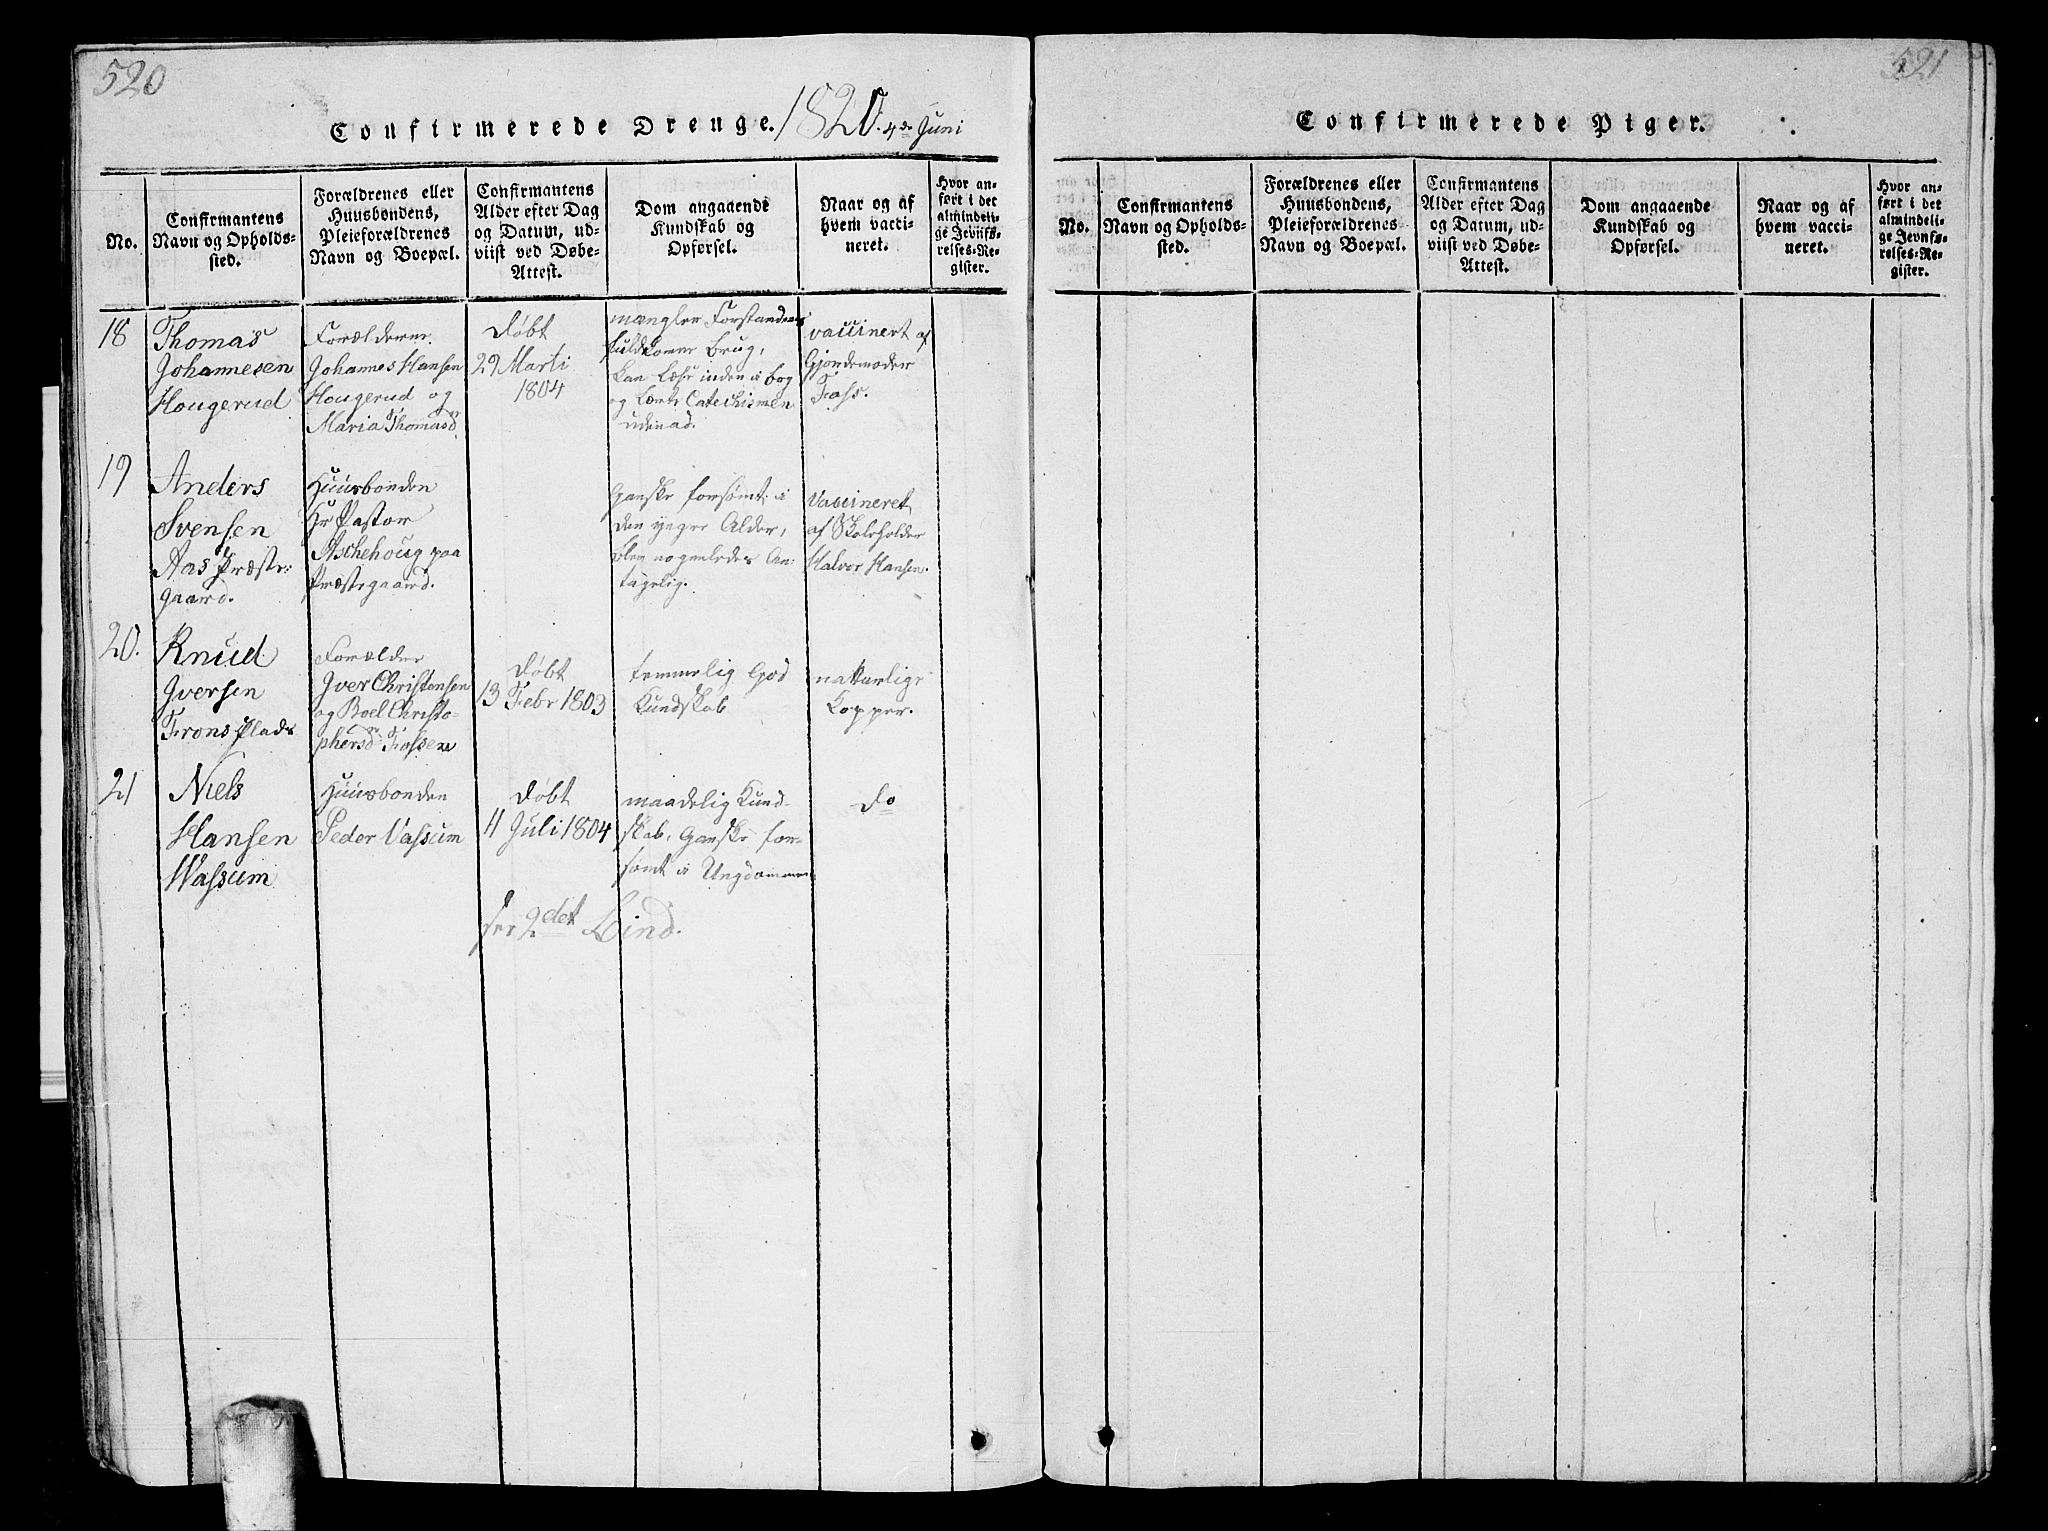 520
Confirmerede Drenge. 1820. 4de Juni
No.
Confirmantens
Navn og Opholds-
sted.
Forældrenes eller
Huusbondens,
Pleieforældrenes
Navn og Boepæl.
Confirmantens
Alder efter Dag
og Datum, ud-
viist ved Døbe-
Attest.
Dom angaaende
Kundskab og
Opførsel.
Naar og af
hvem vacci-
neret.
Hvor an-
ført i det
almindeli-
ge Jevnfø-
relses-Re-
gister.
18
Thomas
Johannesen
Hougerud
Forælderne
Johannes Hansen
Hougerud og
Maria Thomasdr
døbt
29 Marti
1804
mangler Forstandens
fuldkomne brug,
kan læse inden i bog
og lært Catechismen
udenad.
vaccinert af
Gjordemoder
Foss.
19
Anders
Svensen
Aas Præste-
gaard.
Huusbonden
Hr Pastor
Aschehoug paa
Præstegaard.
Ganske forsømt i
den yngre Alder,
blev nogenledes An-
tagelig.
Vaccineret
af Skoleholder
Halvor Hansen.
20.
Knud
Iversen
Frons Plads
Forælder
Iver Christensen
og Boel Christo-
phersdr Fossen
døbt
13 Febr 1803
temmelig God
Kundskab
naturlige
Kopper.
21
Niels
Hansen
Wassum
Huusbonden
Peder Vassum
døbt
11 Juli 1804
maadelig Kund-
skab, Ganske for-
sømt i Ungdommen
do
see 2det Bind.
521
Confirmerede Piger.
No.
Confirmantens
Navn og Opholds-
sted.
Forældrenes eller
Huusbondens,
Pleieforældrenes
Navn og Boepæl.
Confirmantens
Alder efter Dag
og Datum, ud-
viist ved Døbe-
Attest.
Dom angaaende
Kundskab og
Opførsel.
Naar og af
hvem vacci-
neret.
Hvor an-
ført i det
almindeli-
ge Jevnfø-
relses-Re-
gister.